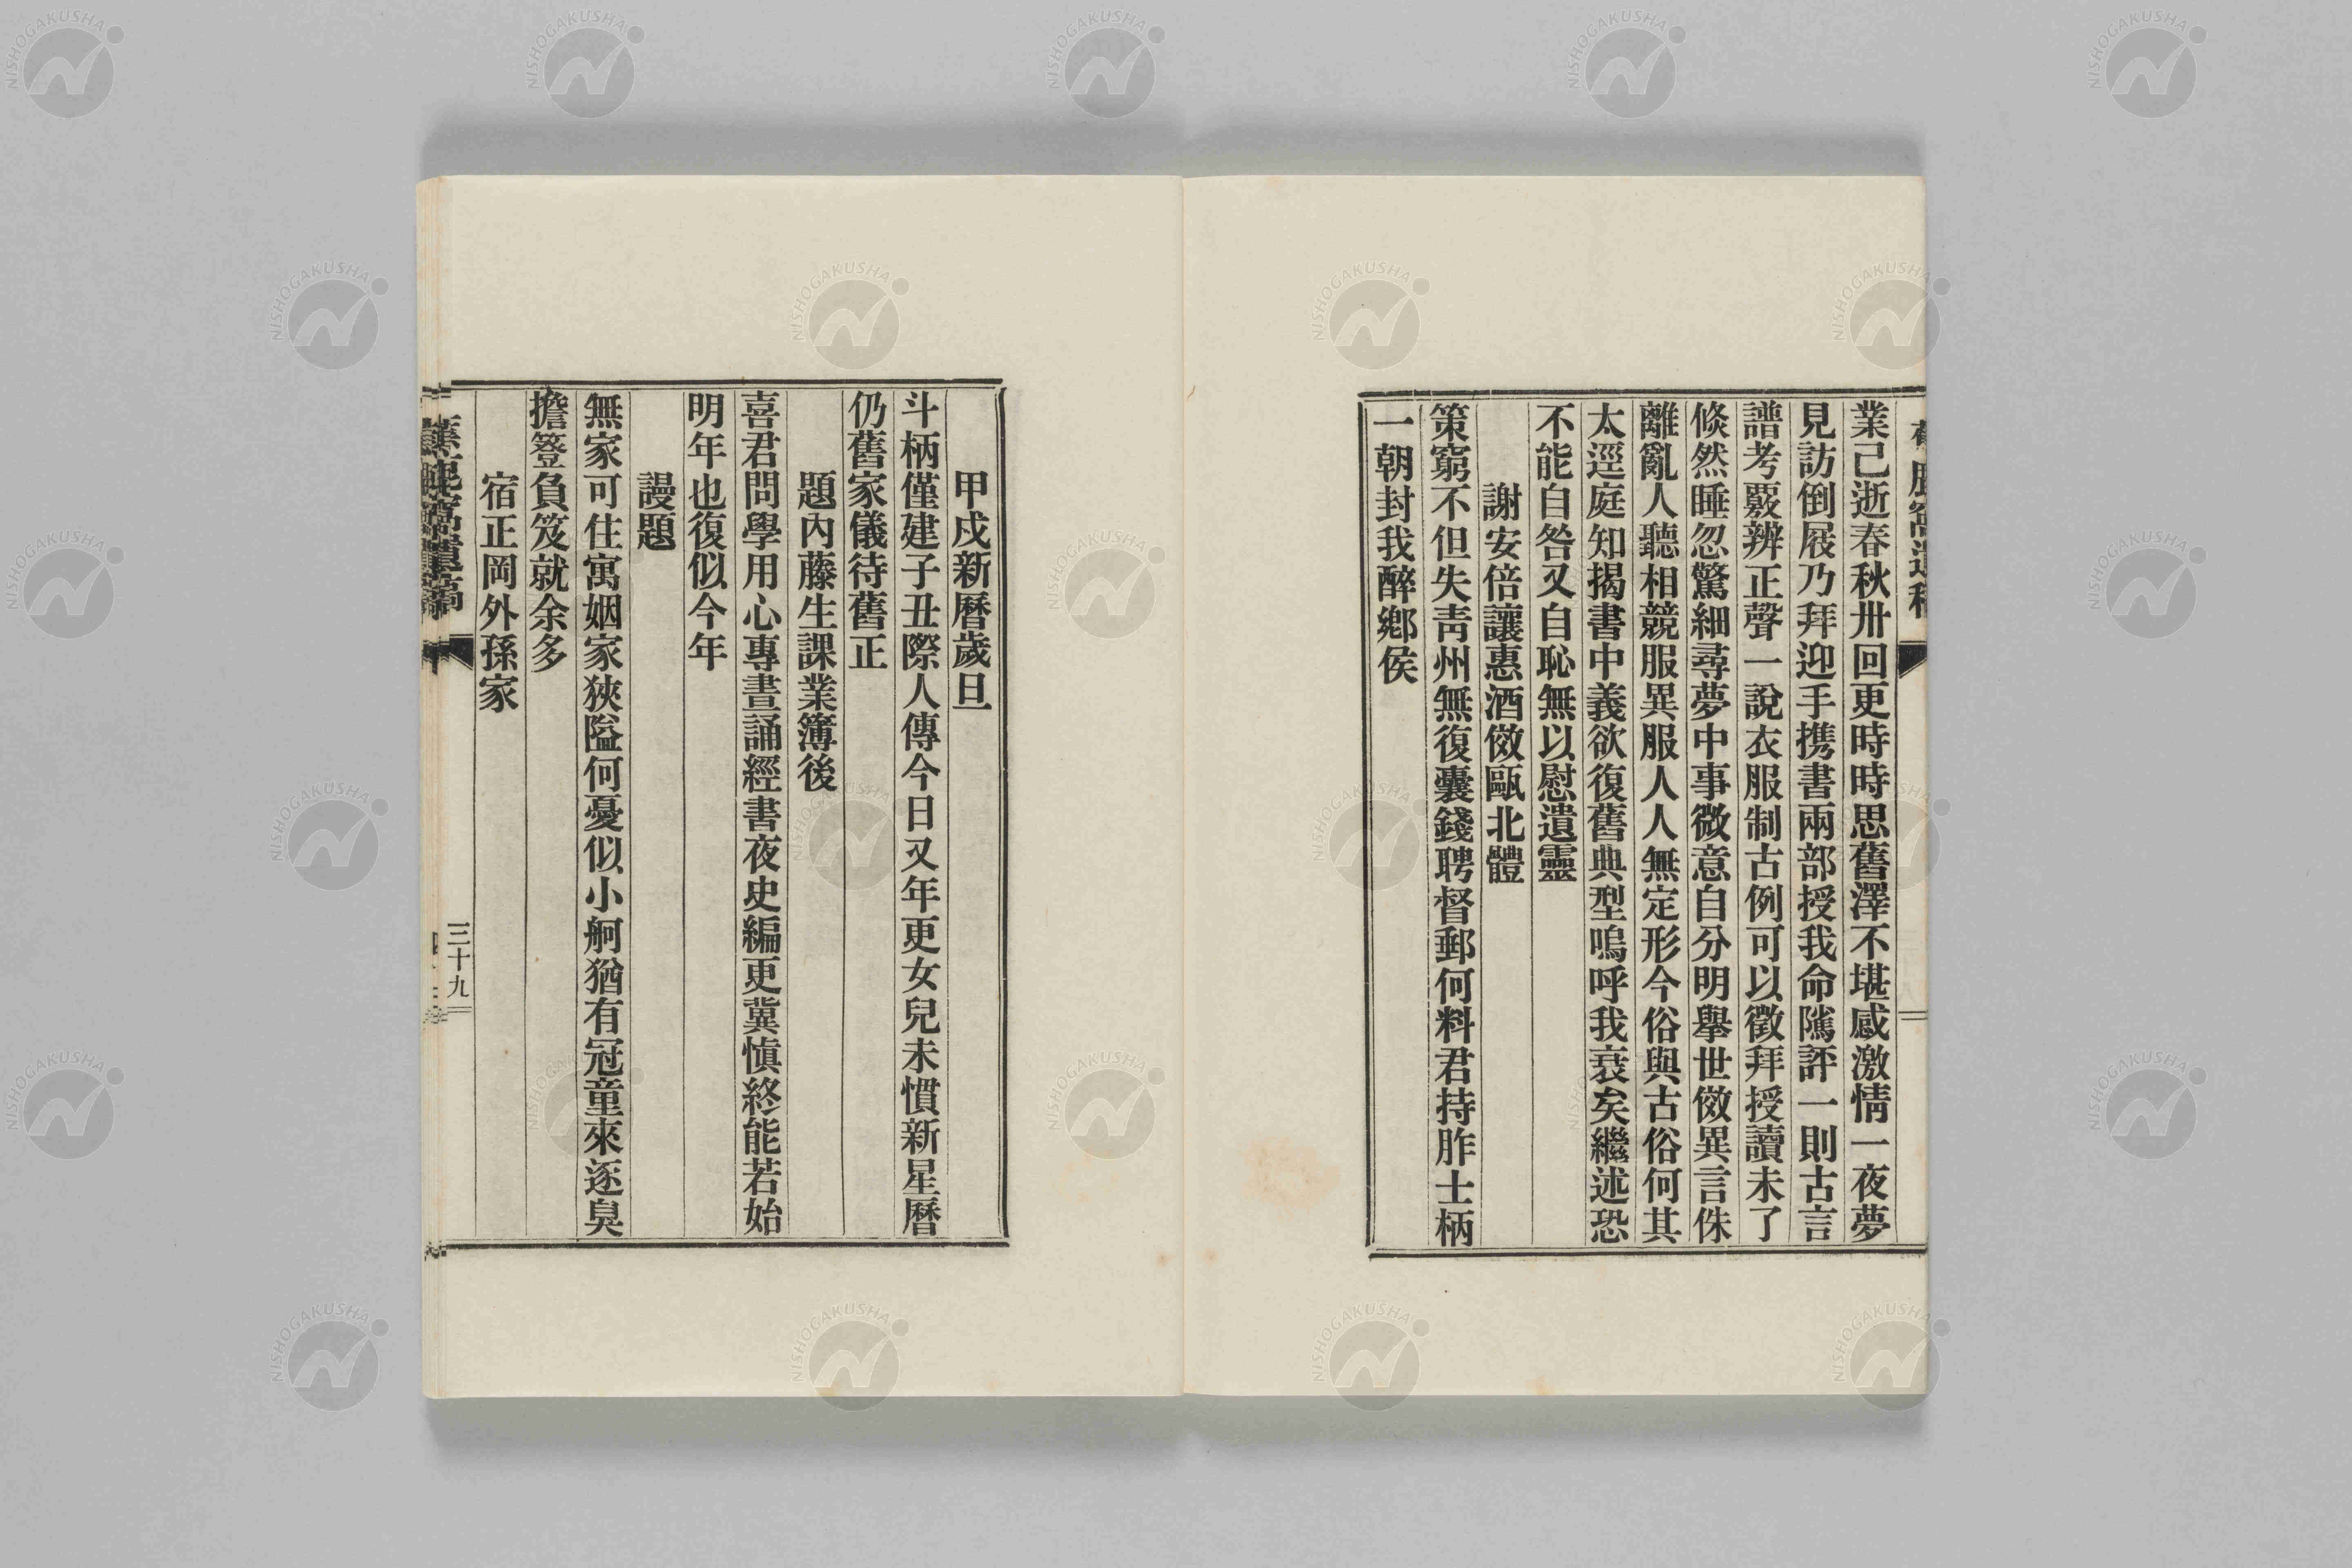 業已逝春秋卅回更時時思舊澤不堪感激情一夜夢
見訪倒屐乃拜迎手携書兩部授我命隲評一則古言
譜考覈辨正聲一說衣服制古例可以徵拜授讀未了
倐然睡忽驚細尋夢中事微意自分明擧世傚異言侏
離亂人聽相競服異服人人無定形今俗與古俗何其
太逕庭知揭書中義欲復舊典型嗚呼我衰矣繼述恐
不能自咎又自恥無以慰遺靈
謝安倍讓惠酒傚甌北體
策窮不但失靑州無復囊錢聘督郵何料君持胙士柄
一朝封我醉鄕侯
甲戍新曆歲旦
斗柄僅建子丑際人傳今日又年更女兒未慣新星曆
仍舊家儀待舊正
題內藤生課業簿後
喜君問學用心專晝誦經書夜史編更冀愼終能若始
明年也復似今年
謾題
無家可住寓姻家狹隘何憂似小舸猶有冠童來逐臭
擔簦負笈就余多
宿正岡外孫家
蕉鹿窩遺稿
三十九
NISHOGAKUSHA